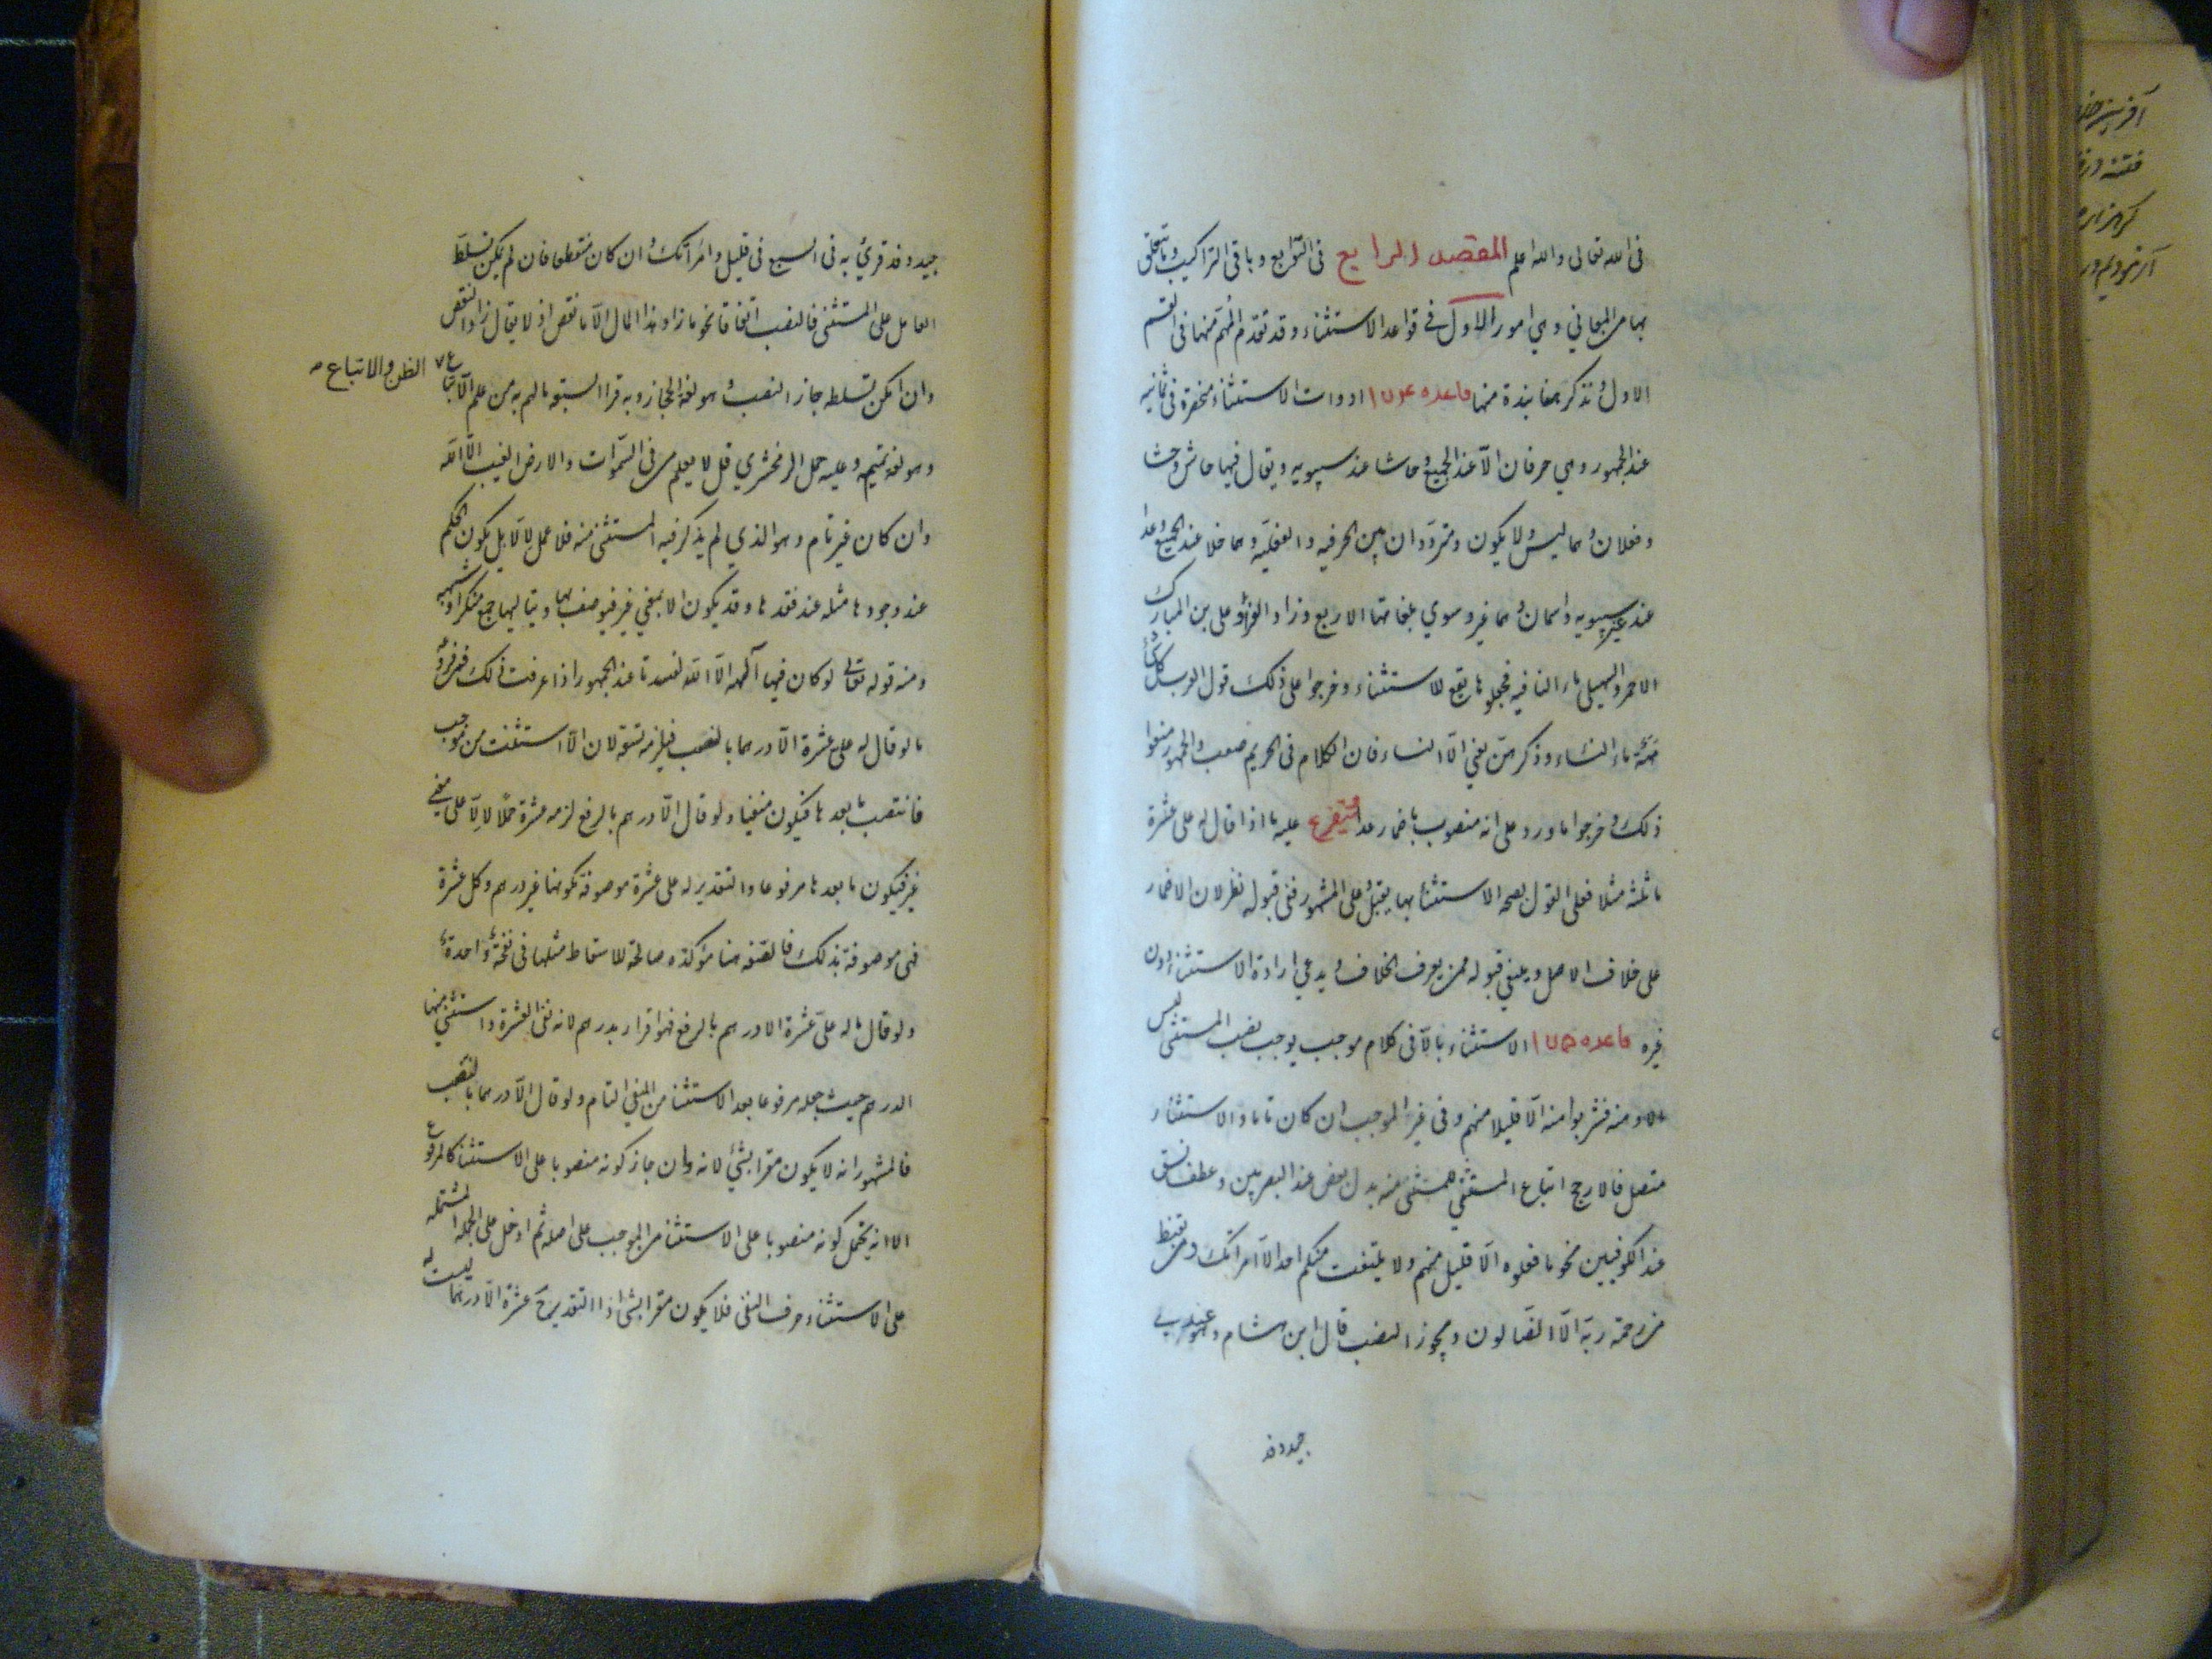 في الله تعالى والله اعلم المقصد الرابع في التوابع وباقي التراكيب وما يتعلق
بها من المعاني وهي امور الاول في قواعد الاستثناء وقد تقدم المهم منها في القسم
الاول ونذكر هنا نبذة منها قاعده ادوات الاستثناء منحصرة في ثمانيه
عند الجمهور وهي حرفان الا عند الجميع وحاشا عند سيبويه ويقال فيها حاش وحشا
وفعلان وهما ليس ولا يكون ومترددان بين الحرفيه والفعليه وهما خلا عند الجميع وعدا
عند غير سيبويه واسمان وهما غير وسوى بلغاتها الاربع وزاد الفراء وعلي بن المبارك
الاحمر والسهيلي ما النافيه فجعلوها تقع للاستثناء وخرجوا على ذلك قول العرب كل شئ
مهه ما النساء وذكرهن يعني الا النساء فان الكلام في الحريم صعب والجمهور منعوا
ذلك وخرجوا ما ورد على انه منصوب باضمار عدا فيتفرع عليه ما اذا قال له علي عشرة
ما ثلثة مثلا فعلى القول بصحة الاستثناء بها يقبل وعلى المشهور ففي قبوله نظر لان الاضمار
على خلاف الاصل وينبغي قبوله ممن يعرف الخلاف ويدعي ارادة الاستثناء دون
غيره قاعده الاستثناء بالا في كلام موجب يوجب نصب المستثنى ليس
الا ومنه فشربوا منه الا قليلا منهم وفي غير الموجب ان كان تاما والاستثناء
متصل فالارجح اتباع المستثنى للمستثنى منه بدل بعض عند البصريين وعطف نسق
عند الكوفيين نحو ما فعلوه الا قليل منهم ولا يلتفت منكم احد الا امراتك ومن يقنط
من رحمة ربه الا الضالون ويجوز النصب قال ابن هشام وهو عندي
جيد وقد
جيد وقد قرئ به في السبع في قليل وامراتك وان كان منقطعا فان لم يكن تسلط
العامل على المستثنى فالنصب اتفاقا نحو ما زاد هذا المال الا ما نقص اذ لا يقال زاد النقص
وان امكن تسلطه جاز النصب وهو لغة الحجاز وبه قرا السبعة ما لهم به من علم الا اتباع
الظن والاتباع
وهو لغة تميم وعليه حمل الزمخشري قل لا يعلم من في السموات والارض الغيب الا الله
وان كان غير تام وهو الذي لم يذكر فيه المستثنى منه فلا عمل لالا بل يكون الحكم
عند وجودها مثله عند فقدها وقد يكون الا بمعنى غير فيوصف بها وبتاليها جمع منكر او شبهه
ومنه قوله تعالى لو كان فيهما آلهة الا الله لفسدتا عند الجمهور اذا عرفت ذلك فمن فروعه
ما لو قال له علي عشرة الا درهما بالنصب فيلزمه تسعة لان الا استثنت من موجب
فانتصب ما بعدها فيكون منفيا ولو قال الا درهم بالرفع لزمه عشرة حملا لالا على معنى
غير فيكون ما بعدها مرفوعا والتقدير له علي عشرة موصوفة بكونها غير درهم وكل عشرة
فهي موصوفة بذلك فالصفة هنا مؤكدة صالحة للاسقاط مثلها في نفخة واحدة
ولو قال ما له علي عشرة الا درهم بالرفع فهو اقرار بدرهم لانه نفى العشرة واستثنى منها
الدرهم حيث جعله مرفوعا بعد الاستثنا من المنفي التام ولو قال الا درهما بالنصب
فالمشهور انه لا يكون مقرا بشئ لانه وان جاز كونه منصوبا على الاستثنا كالمرفوع
الا انه يحتمل كونه منصوبا على الاستثنا من الموجب على اصله ثم ادخل على الجملة المشتملة
على الاستثناء حرف النفي فلا يكون مقرا بشئ اذ التقدير ح عشرة الا درهما ليست له